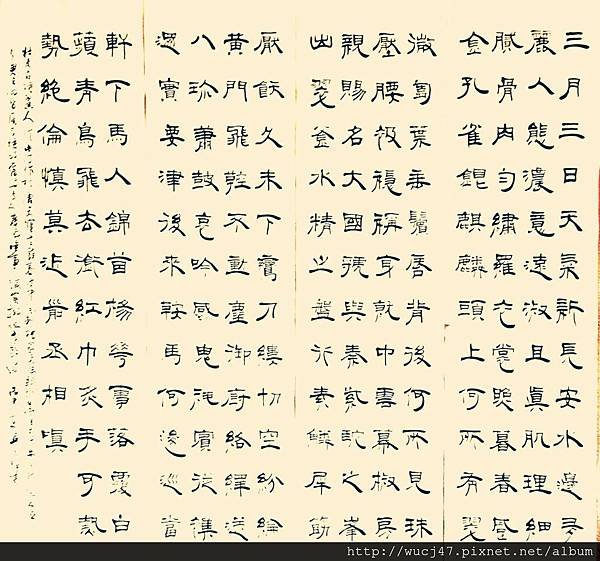 三月三日天氣新長安水邊多
麗人態濃意遠淑且眞肌理細
膩骨肉勻繡羅衣裳照暮春蹙
金孔雀銀麒麟頭上何所有翠
微㔩葉垂鬢唇背後何所見珠
壓腰衱穩稱身就中雲幕椒房
親賜名大國虢與秦紫駝之峯
出翠釜水精之盤行素鱗犀筯
厭飫久未下鸞刀縷切空紛綸
黃門飛鞚不動塵御府絡繹送
八珍蕭鼓哀吟感鬼神賓從雜
遝實要津後來鞍馬何逡巡當
軒下馬人錦茵楊花雪落覆白
蘋青鳥飛去銜紅巾炙手可熱
勢絕倫慎莫近前丞相嗔
http://wucj47.pixnet.net/album